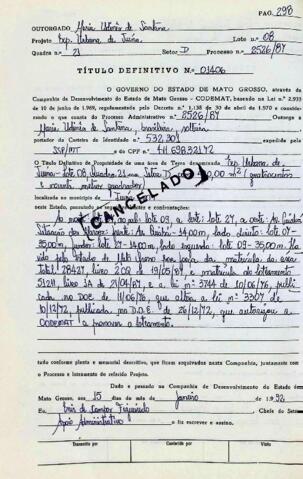 PAG. 298
OUTORGADO Maria Urbino de Santana
Projeto Exp. Urbana de Juína Lote n.º 08
Quadra n.º 21 Setor D Processo n.º 2526/87
TÍTULO DEFINITIVO N.º 01406
O GOVERNO DO ESTADO DE MATO GROSSO, através da
Companhia de Desenvolvimento do Estado de Mato Grosso - CODEMAT, com base na Lei n.º 2.933
de 10 de junho de 1969, regulamentada pelo Decreto n.º 1.138 de 30 de abril de 1.970 e considerando
o que consta do Processo Administrativo n.º 2526/87 Outorga a
Maria de Santana, brasileira, solteira
portador da Carteira de Identidade n.º 532.301
SSP/MT e do CPF n.º
O Título Definitivo de Propriedade de uma área de Terra denominada Exp. Urbana de
Juína - lote 08, Quadra 21 Setor D (quatrocentos
e noventa metros quadrados)
localizada no município de
neste Estado, possuindo as seguintes e confrontações:
CANCELADO
Ao lote 09, a este: lote 27, a oeste: Av.
frente: Av. - 14,00m, lado direito: lote 07-
35,00m, fundos: lote 27- 14,00m, lado esquerdo: lote 09- 35,00m. Ha
vido pelo Estado de Mato Grosso por força da matrícula da área
total 28427, livro 2 de 19/05/87, e matrícula do loteamento
livro 2A de 21/04/87, e a lei nº 3744 de 10/06/76, publi
cada no DOE de 11/06/76, que altera a lei nº 3307 de
10/12/72, publicada no D.O.E. de 26/12/72, que autorizou a
CODEMAT a promover o loteamento.
tudo conforme planta e memorial descritivo, que ficam arquivados nesta Companhia, juntamente com
o Processo e loteamento do referido Projeto.
Dado e passado na Companhia de Desenvolvimento do Estado de
Mato Grosso, aos 15 dias do mês de janeiro de 1.992
Eu, Figueiredo Chefe do Setor
Apoio Administrativo o fiz escrever e assino.
Transcrito por Conferido por Visto